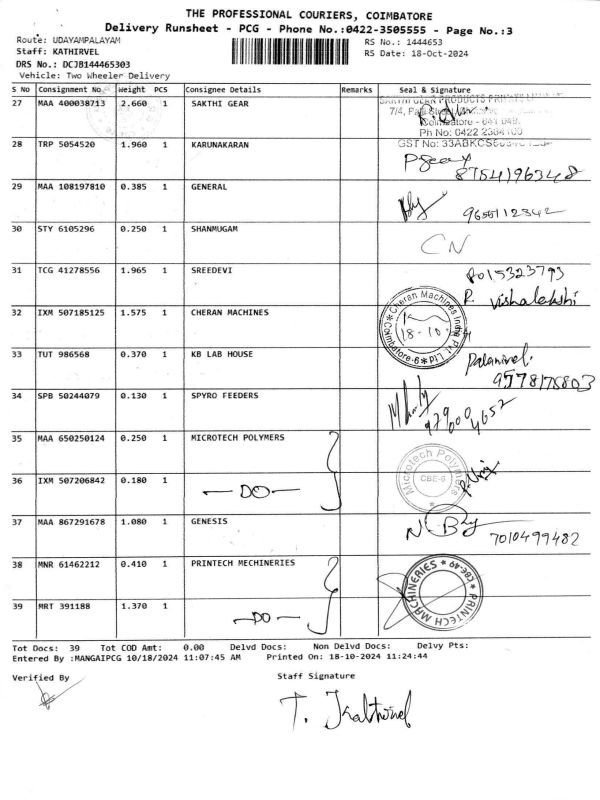 THE PROFESSIONAL COURIERS, COIMBATORE
Delivery Runsheet - PCG - Phone No.:0422-3505555 - Page No.:3
Route: UDAYAMPALAYAM RS No.: 1444653
Staff: KATHIRVEL RS Date: 18-Oct-2024
DRS No.: DCJB144465303
Vehicle: Two Wheeler Delivery
S No Consignment No. Weight PCS Consignee Details Remarks Seal & Signature
27 MAA 400038713 2.660 1 SAKTHI GEAR
SAKTHI GEAR PRODUCTS
Coimbatore - 641 049.
Ph No: 0422
GST No:
28 TRP 5054520 1.960 1 KARUNAKARAN
8754196348
29 MAA 108197810 0.385 1 GENERAL
9655112342
30 STY 6105296 0.250 1 SHANMUGAM CN
31 TCG 41278556 1.965 1 SREEDEVI 8015323793
R. Vishalekshi
32 IXM 507185125 1.575 1 CHERAN MACHINES
Cheran Machines India Pvt. Ltd * Coimbatore-6 *
18-10
33 TUT 986568 0.370 1 KB LAB HOUSE Palanivel.
9578175803
34 SPB 50244079 0.130 1 SPYRO FEEDERS
9790004652
35 MAA 650250124 0.250 1 MICROTECH POLYMERS
Microtech Polymers
CBE-6
36 IXM 507206842 0.180 1 -DO-
37 MAA 867291678 1.080 1 GENESIS
7010499482
38 MNR 61462212 0.410 1 PRINTECH MECHINERIES
PRINTECH MACHINERIES * CBE-49 *
39 MRT 391188 1.370 1 -DO-
Tot Docs: 39 Tot COD Amt: 0.00 Delvd Docs: Non Delvd Docs: Delvy Pts:
Entered By :MANGAIPCG 10/18/2024 11:07:45 AM Printed On: 18-10-2024 11:24:44
Verified By Staff Signature
T. Kathirvel